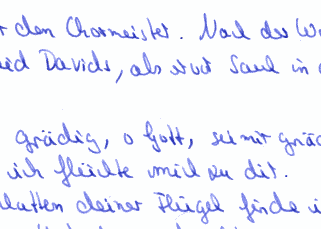 den Chormeister. Nach der W
ied Davids, als er vor Saul in
gnädig, o Gott, sei mir gnäd
ich flüchte mich zu dir.
hatten deiner Flügel finde i